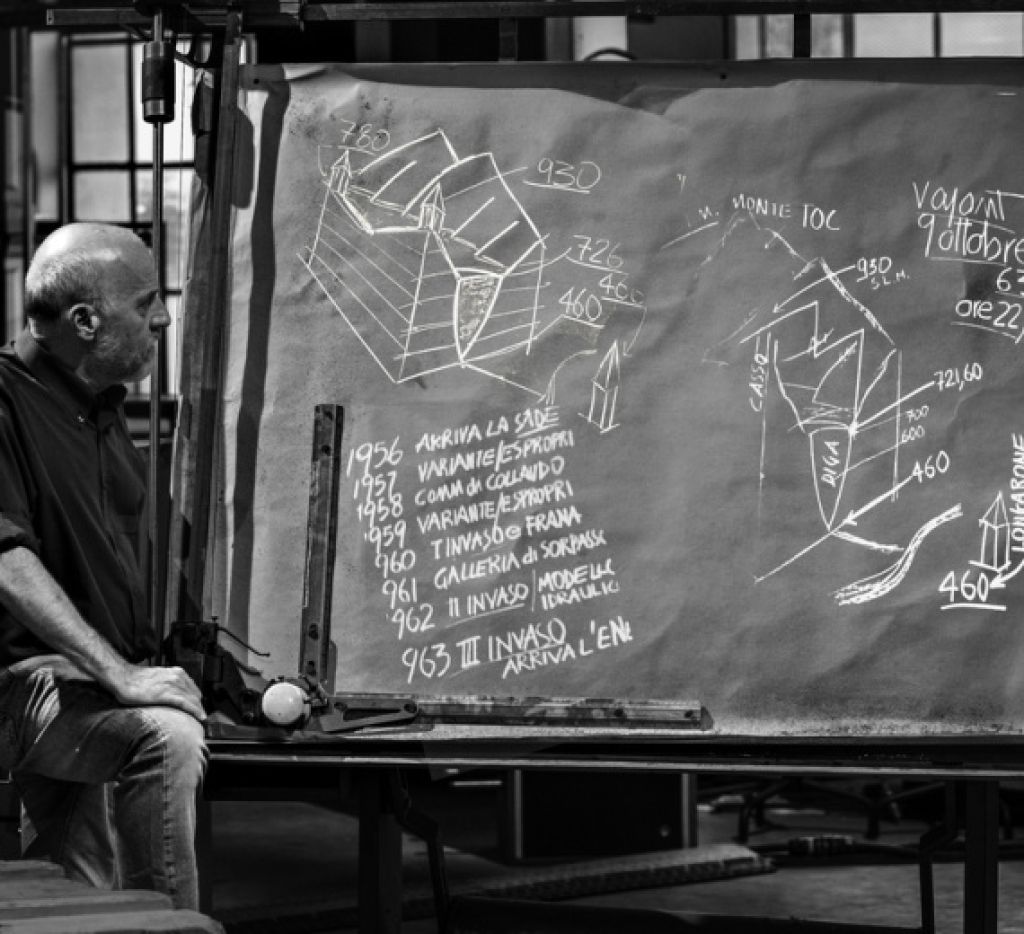 780
930
726
460
460
1956 ARRIVA LA SADE
1957 VARIANTE/ESPROPRI
1958 COMM di COLLAUDO
1959 VARIANTE/ESPROPRI
960 I INVASO e FRANA
961 GALLERIA di SORPASS
962 II INVASO / MODELLO
IDRAULIC
963 III INVASO
ARRIVA L'EN
MONTE TOC
930
S.L.M.
CASSO
721,60
700
600
DIGA
460
Vajont
9 ottobre
63
ore 22
LONGARONE
460